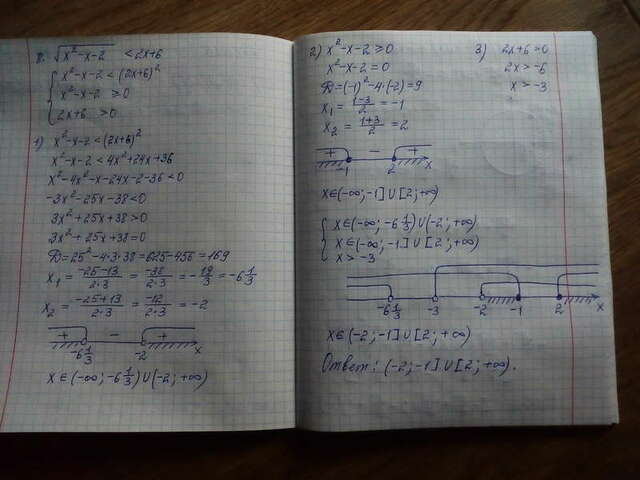 8. √x²-x-2 < 2x+6
{ x²-x-2 < (2x+6)²
x²-x-2 ≥ 0
2x+6 > 0
1) x²-x-2 < (2x+6)²
x²-x-2 < 4x²+24x+36
x²-4x²-x-24x-2-36 < 0
-3x²-25x-38 < 0
3x²+25x+38 > 0
3x²+25x+38 = 0
D = 25²-4·3·38 = 625-456 = 169
x₁ = (-25-13)/(2·3) = -38/(2·3) = -19/3 = -6 1/3
x₂ = (-25+13)/(2·3) = -12/(2·3) = -2
+ - +
-6 1/3 -2 x
x ∈ (-∞; -6 1/3) ∪ (-2; +∞)
2) x²-x-2 ≥ 0
x²-x-2 = 0
D = (-1)²-4·(-2) = 9
x₁ = (1-3)/2 = -1
x₂ = (1+3)/2 = 2
+ - +
-1 2 x
x ∈ (-∞; -1] ∪ [2; +∞)
{ x ∈ (-∞; -6 1/3) ∪ (-2; +∞)
x ∈ (-∞; -1] ∪ [2; +∞)
x > -3
-6 1/3 -3 -2 -1 2 x
x ∈ (-2; -1] ∪ [2; +∞)
Ответ: (-2; -1] ∪ [2; +∞).
3) 2x+6 > 0
2x > -6
x > -3